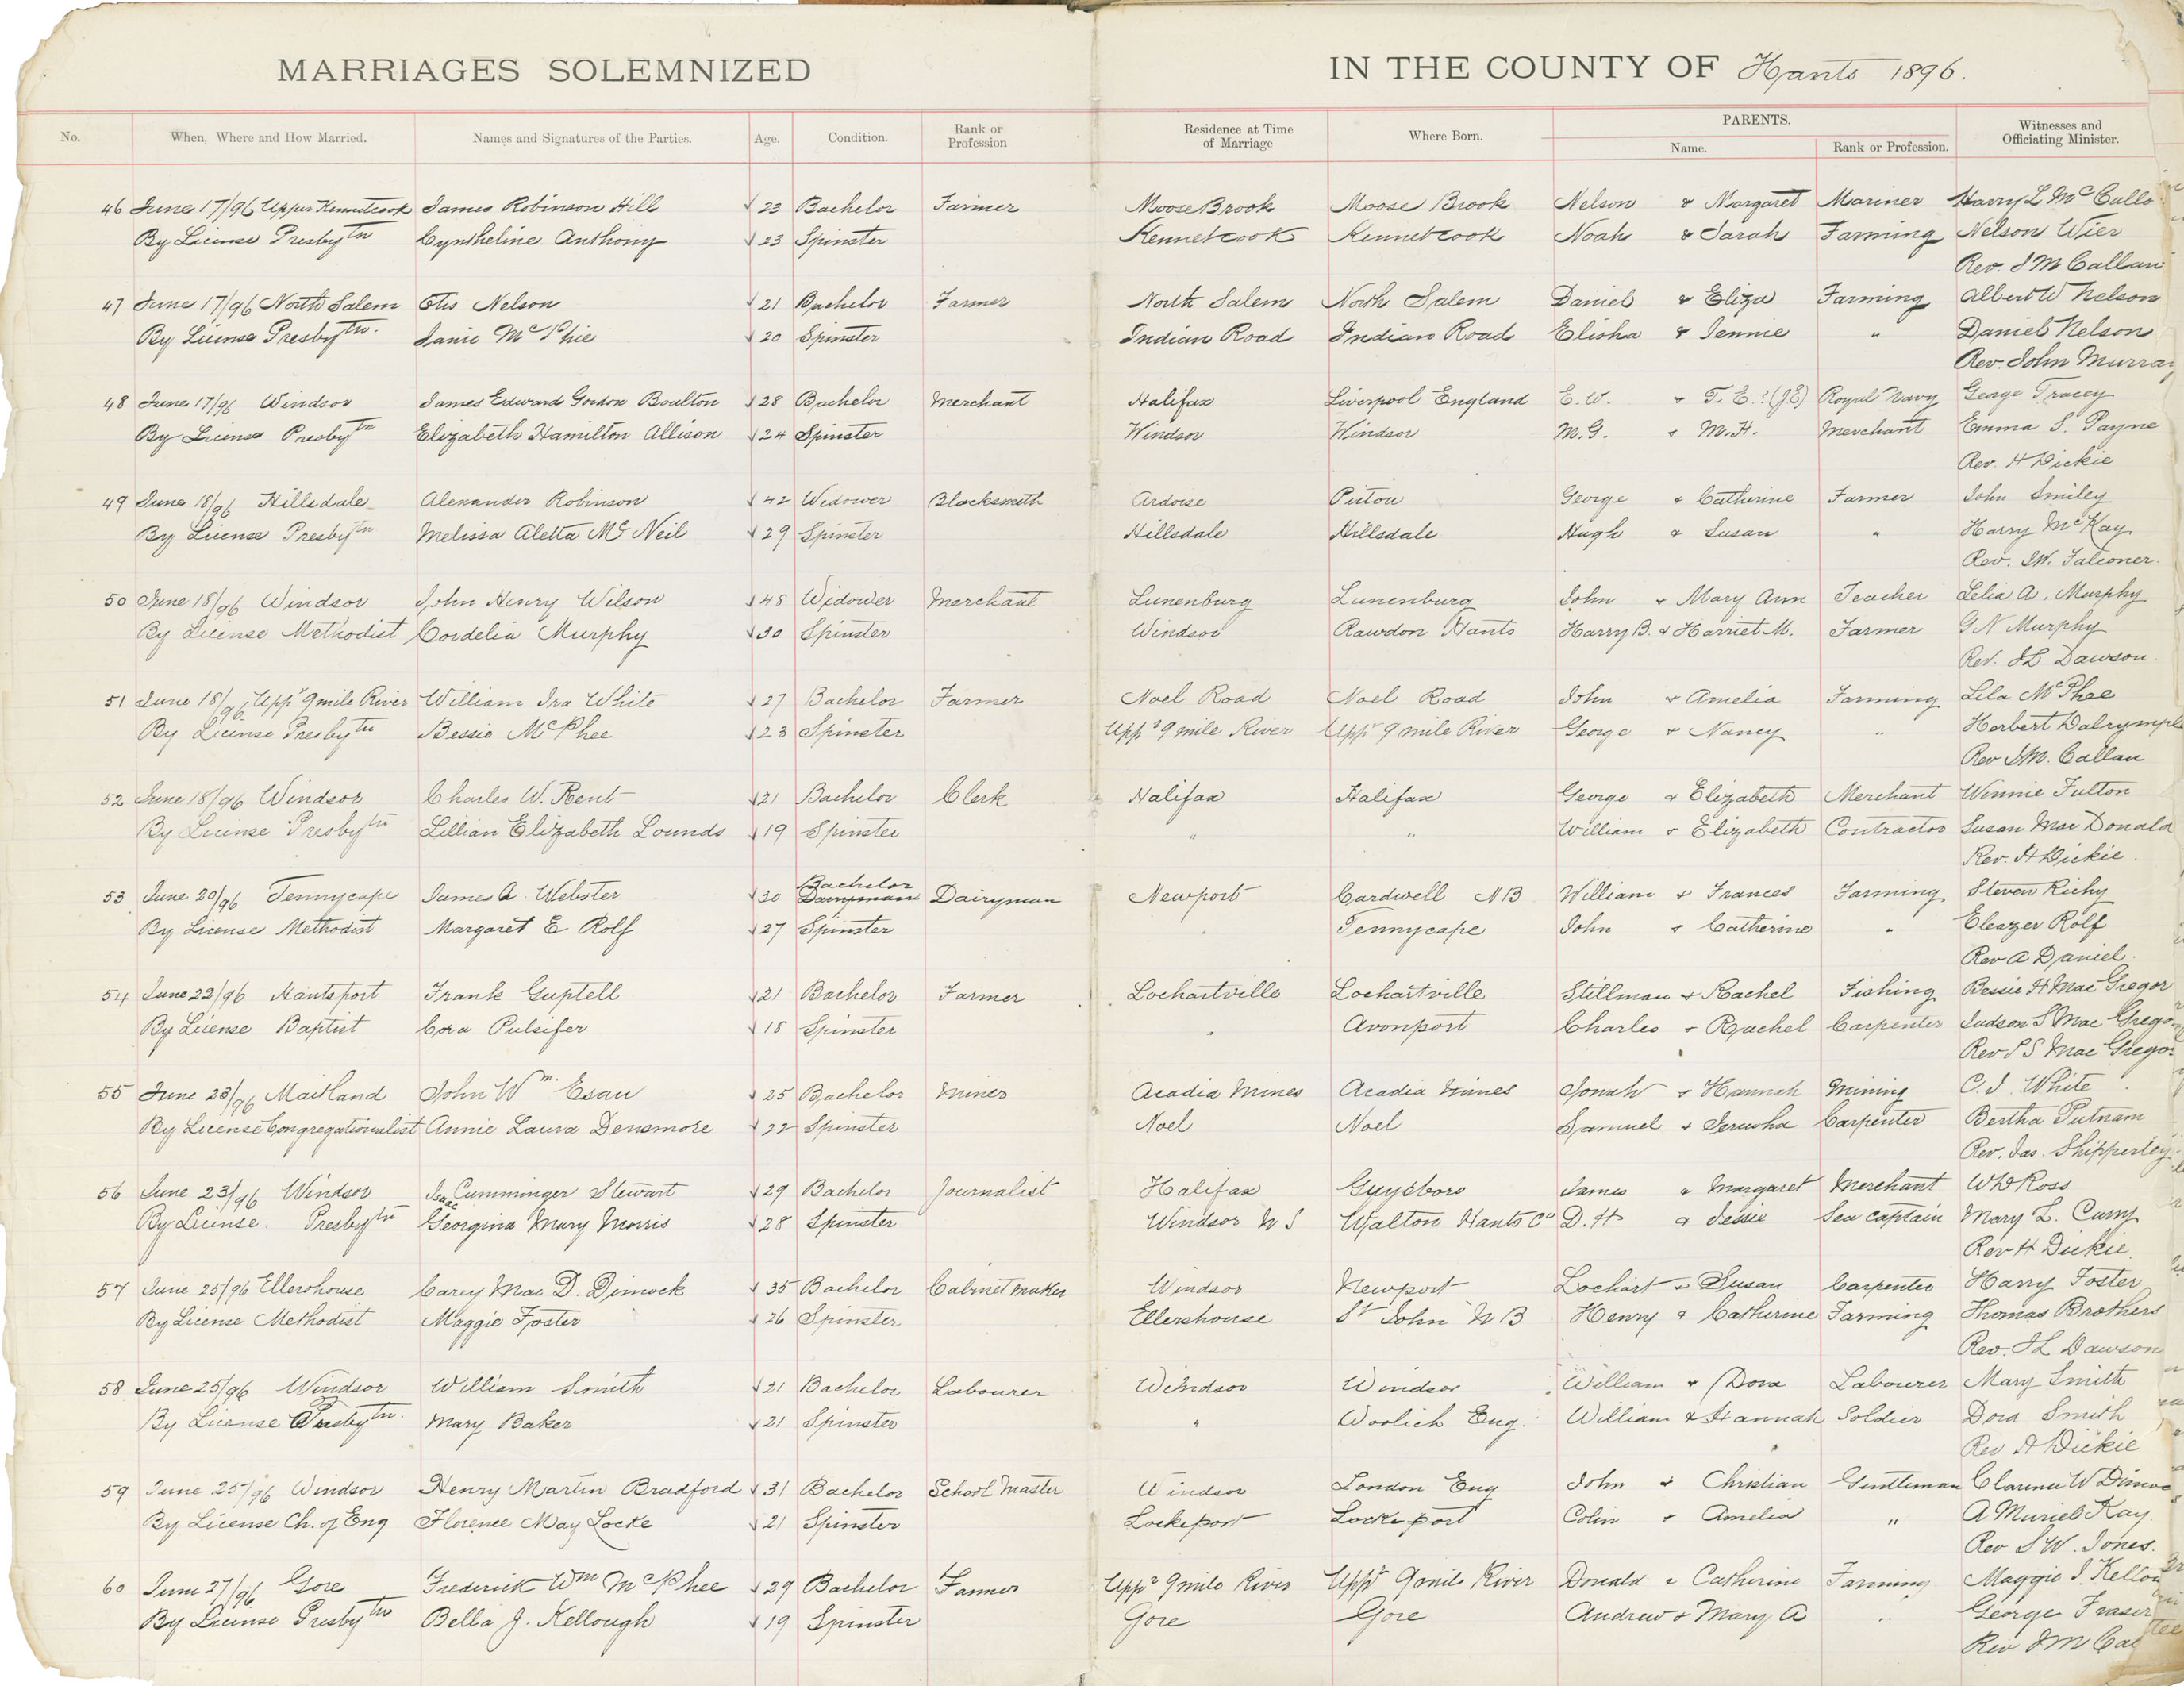 MARRIAGES SOLEMNIZED IN THE COUNTY OF Hants 1896.
No. When, Where and How Married. Names and Signatures of the Parties. Age. Condition. Rank or Profession Residence at Time of Marriage Where Born. PARENTS. Name. Rank or Profession. Witnesses and Officiating Minister.
46 June 17/96 Upper Kennetcook James Robinson Hill 23 Bachelor Farmer Moose Brook Moose Brook Nelson & Margaret Mariner Harry L McCullo
By License Presbytn Cyntheline Anthony 23 Spinster Kennetcook Kennetcook Noah & Sarah Farming Nelson Wier
Rev. J M Callan
47 June 17/96 North Salem Otis Nelson 21 Bachelor Farmer North Salem North Salem Daniel & Eliza Farming Albert W Nelson
By License Presbytn. Janie McPhie 20 Spinster Indian Road Indian Road Elisha & Jennie " Daniel Nelson
Rev. John Murray
48 June 17/96 Windsor James Edward Gordon Boulton 28 Bachelor Merchant Halifax Liverpool England E. W. & T. E.? (J E) Royal Navy George Tracey
By License Presbytn Elizabeth Hamilton Allison 24 Spinster Windsor Windsor M. G. & M. H. Merchant Emma S. Payne
Rev. H Dickie
49 June 18/96 Hillsdale Alexander Robinson 42 Widower Blacksmith Ardoise Pictou George & Catherine Farmer John Smiley
By License Presbytn Melissa Aletta McNeil 29 Spinster Hillsdale Hillsdale Hugh & Susan " Harry McKay
Rev. J W. Falconer.
50 June 18/96 Windsor John Henry Wilson 48 Widower Merchant Lunenburg Lunenburg John & Mary Ann Teacher Lelia A. Murphy
By License Methodist Cordelia Murphy 30 Spinster Windsor Rawdon Hants Harry B. & Harriet M. Farmer G N Murphy
Rev. J L Dawson.
51 June 18/96 Uppr 9 mile River William Ira White 27 Bachelor Farmer Noel Road Noel Road John & Amelia Farming Lila McPhee
By License Presbytn Bessie McPhee 23 Spinster Uppr 9 mile River Uppr 9 mile River George & Nancy " Herbert Dalrymple
Rev J M. Callan
52 June 18/96 Windsor Charles W. Rent 21 Bachelor Clerk Halifax Halifax George & Elizabeth Merchant Winnie Fulton
By License Presbytn Lillian Elizabeth Lounds 19 Spinster " " William & Elizabeth Contractor Susan MacDonald
Rev. H Dickie.
53 June 20/96 Tennycape James A. Webster 30 Bachelor Dairyman Dairyman Newport Cardwell NB William & Frances Farming Steven Richy
By License Methodist Margaret E Rolf 27 Spinster " Tennycape John & Catherine " Eleazer Rolf
Rev A Daniel.
54 June 22/96 Hantsport Frank Guptell 21 Bachelor Farmer Lochartville Lochartville Stillman & Rachel Fishing Bessie H MacGregor
By License Baptist Cora Pulsifer 18 Spinster " Avonport Charles & Rachel Carpenter Judson S MacGrego
Rev P S MacGregor
55 June 23/96 Maitland John Wm. Esau 25 Bachelor Miner Acadia Mines Acadia Mines Jonah & Hannah Mining C. J. White
By License Congregationalist Annie Laura Densmore 22 Spinster Noel Noel Samuel & Jerusha Carpenter Bertha Putnam
Rev. Jas. Shipperley
56 June 23/96 Windsor Isaac Cumminger Stewart 29 Bachelor Journalist Halifax Guysboro James & Margaret Merchant W D Ross
By License. Presbytn Georgina Mary Morris 28 Spinster Windsor N S Walton Hants Co D. H & Jessie Sea Captain Mary L. Curry
Rev H Dickie.
57 June 25/96 Ellershouse Carey Mac D. Dimock 35 Bachelor Cabinet maker Windsor Newport Lochart & Susan Carpenter Harry Foster
By License Methodist Maggie Foster 26 Spinster Ellershouse St John N B Henry & Catherine Farming Thomas Brothers
Rev. J L Dawson
58 June 25/96 Windsor William Smith 21 Bachelor Labourer Windsor Windsor William & Dora Labourer Mary Smith
By License Presbytn. Mary Baker 21 Spinster " Woolich Eng. William & Hannah Soldier Dora Smith
Rev H Dickie
59 June 25/96 Windsor Henry Martin Bradford 31 Bachelor School Master Windsor London Eng John & Christian Gentleman Clarence W Dimoc
By License Ch. of Eng Florence May Locke 21 Spinster Lockeport Lockeport Colin & Amelia " A Muriel Kay
Rev S W. Jones.
60 June 27/96 Gore Frederick Wm McPhee 29 Bachelor Farmer Uppr 9 mile River Uppr 9 mile River Donald & Catherine Farming Maggie J. Kellou
By License Presbytn Bella J. Kellough 19 Spinster Gore Gore Andrew & Mary A " George Fraser
Rev J M Cal